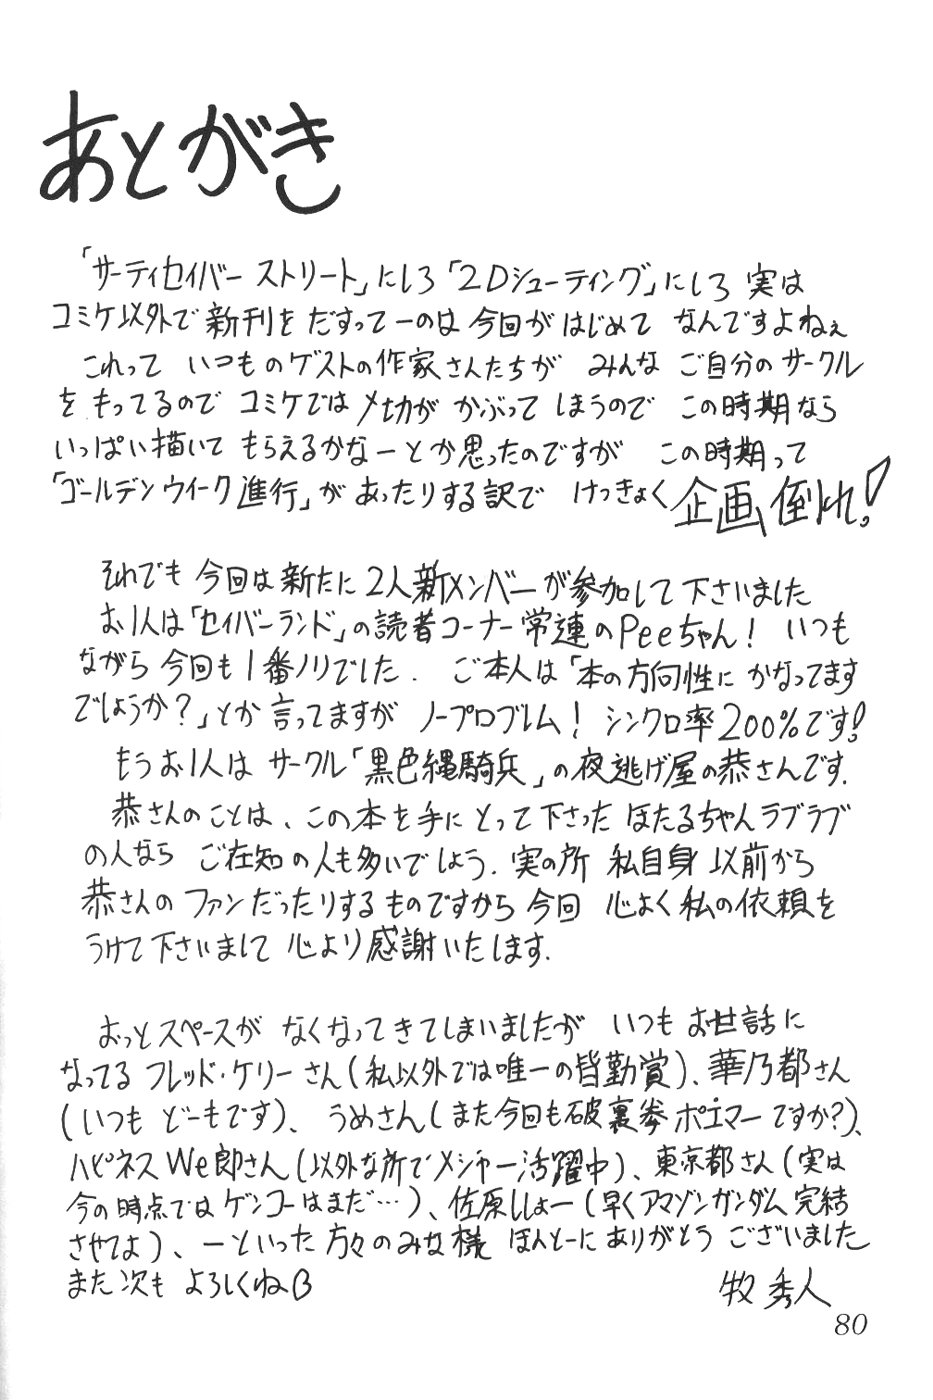 あとがき
「サーティセイバー ストリート」にしろ「2Dシューティング」にしろ 実は
コミケ以外で新刊を だすってーのは 今回が はじめて なんですよねぇ
これって いつものゲストの作家さんたちが みんな ご自分のサークル
を もってるので コミケでは〆切が かぶって しまうので この時期なら
いっぱい描いて もらえるかなーとか思ったのですが この時期って
「ゴールデンウイーク進行」が あったりする訳で けっきょく 企画倒れ!
それでも 今回は新たに 2人新メンバーが参加して下さいました
お1人は「セイバーランド」の読者コーナー常連のPeeちゃん! いつも
ながら 今回も1番ノリでした. ご本人は「本の方向性に かなってます
でしょうか?」とか 言ってますが ノープロブレム! シンクロ率200%です!
もうお1人は サークル「黒色縄騎兵」の夜逃げ屋の恭さんです.
恭さんのことは、この本を手に とって 下さった ほたるちゃんラブラブ
の人なら ご在知の人も多いでしょう. 実の所 私自身 以前から
恭さんの ファンだったりするものですから 今回 心よく私の依頼を
うけて下さいまして 心より感謝いたします.
おっとスペースが なくなってきてしまいましたが いつも お世話に
なってる フレッド・ケリーさん(私以外では唯一の皆勤賞)、華乃都さん
(いつも どーもです)、 うめさん(また今回も破裏拳 ポエマーですか?)、
ハピネスWe郎さん(以外な所でメジャー活躍中)、東京都さん(実は
今の時点では ゲンコーはまだ…)、佐原ししょー(早くアマゾンガンダム完結
させてよ)、ーといった 方々のみな様 ほんとーに ありがとう ございました
また次も よろしくね
牧 秀人
80